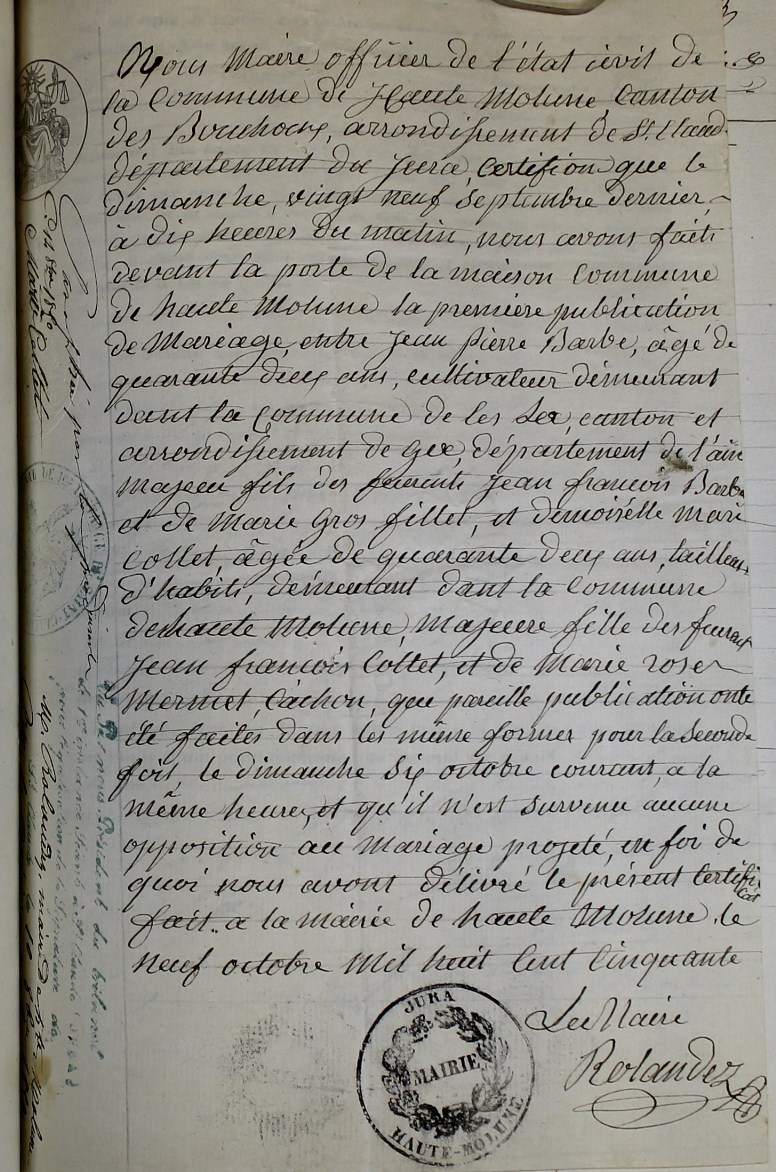 Nous Maire officier de l'état civil de
la Commune de Haute Molune Canton
des Bouchoux, arrondissement de St. Claud.
département du Jura, certifions que le
dimanche, vingt neuf Septembre dernier,
à dix heures du matin, nous avons fait
devant la porte de la maison Commune
de haute Molune la première publication
de Mariage, entre Jean Pierre Barbe, âgé de
quarante deux ans, cultivateur demeurant
dant la Commune de les Lex, canton et
arrondissement de Gex, département de l'ain
majeur fils des feu Jean françois Barbe
et de Marie Gros fillet, et demoiselle Marie
Collet, âgée de quarante deux ans, tailleuse
d'habits, demeurant dant la Commune
de haute Molune, majeure fille des feu
Jean françois Collet, et de Marie rose
Mermet Cachon, que pareille publication ont
été faites dans les même formes pour la Seconde
fois, le dimanche Six octobre courant, a la
même heure, et qu'il n'est Survenu aucune
opposition au Mariage projeté, en foi de
quoi nous avont délivré le présent Certificat
fait a la mairie de haute Molune, le
neuf octobre Mil huit Cent Cinquante
Le Maire
Rolandez
JURA
MAIRIE
HAUTE-MOLUNE
Marie Collet